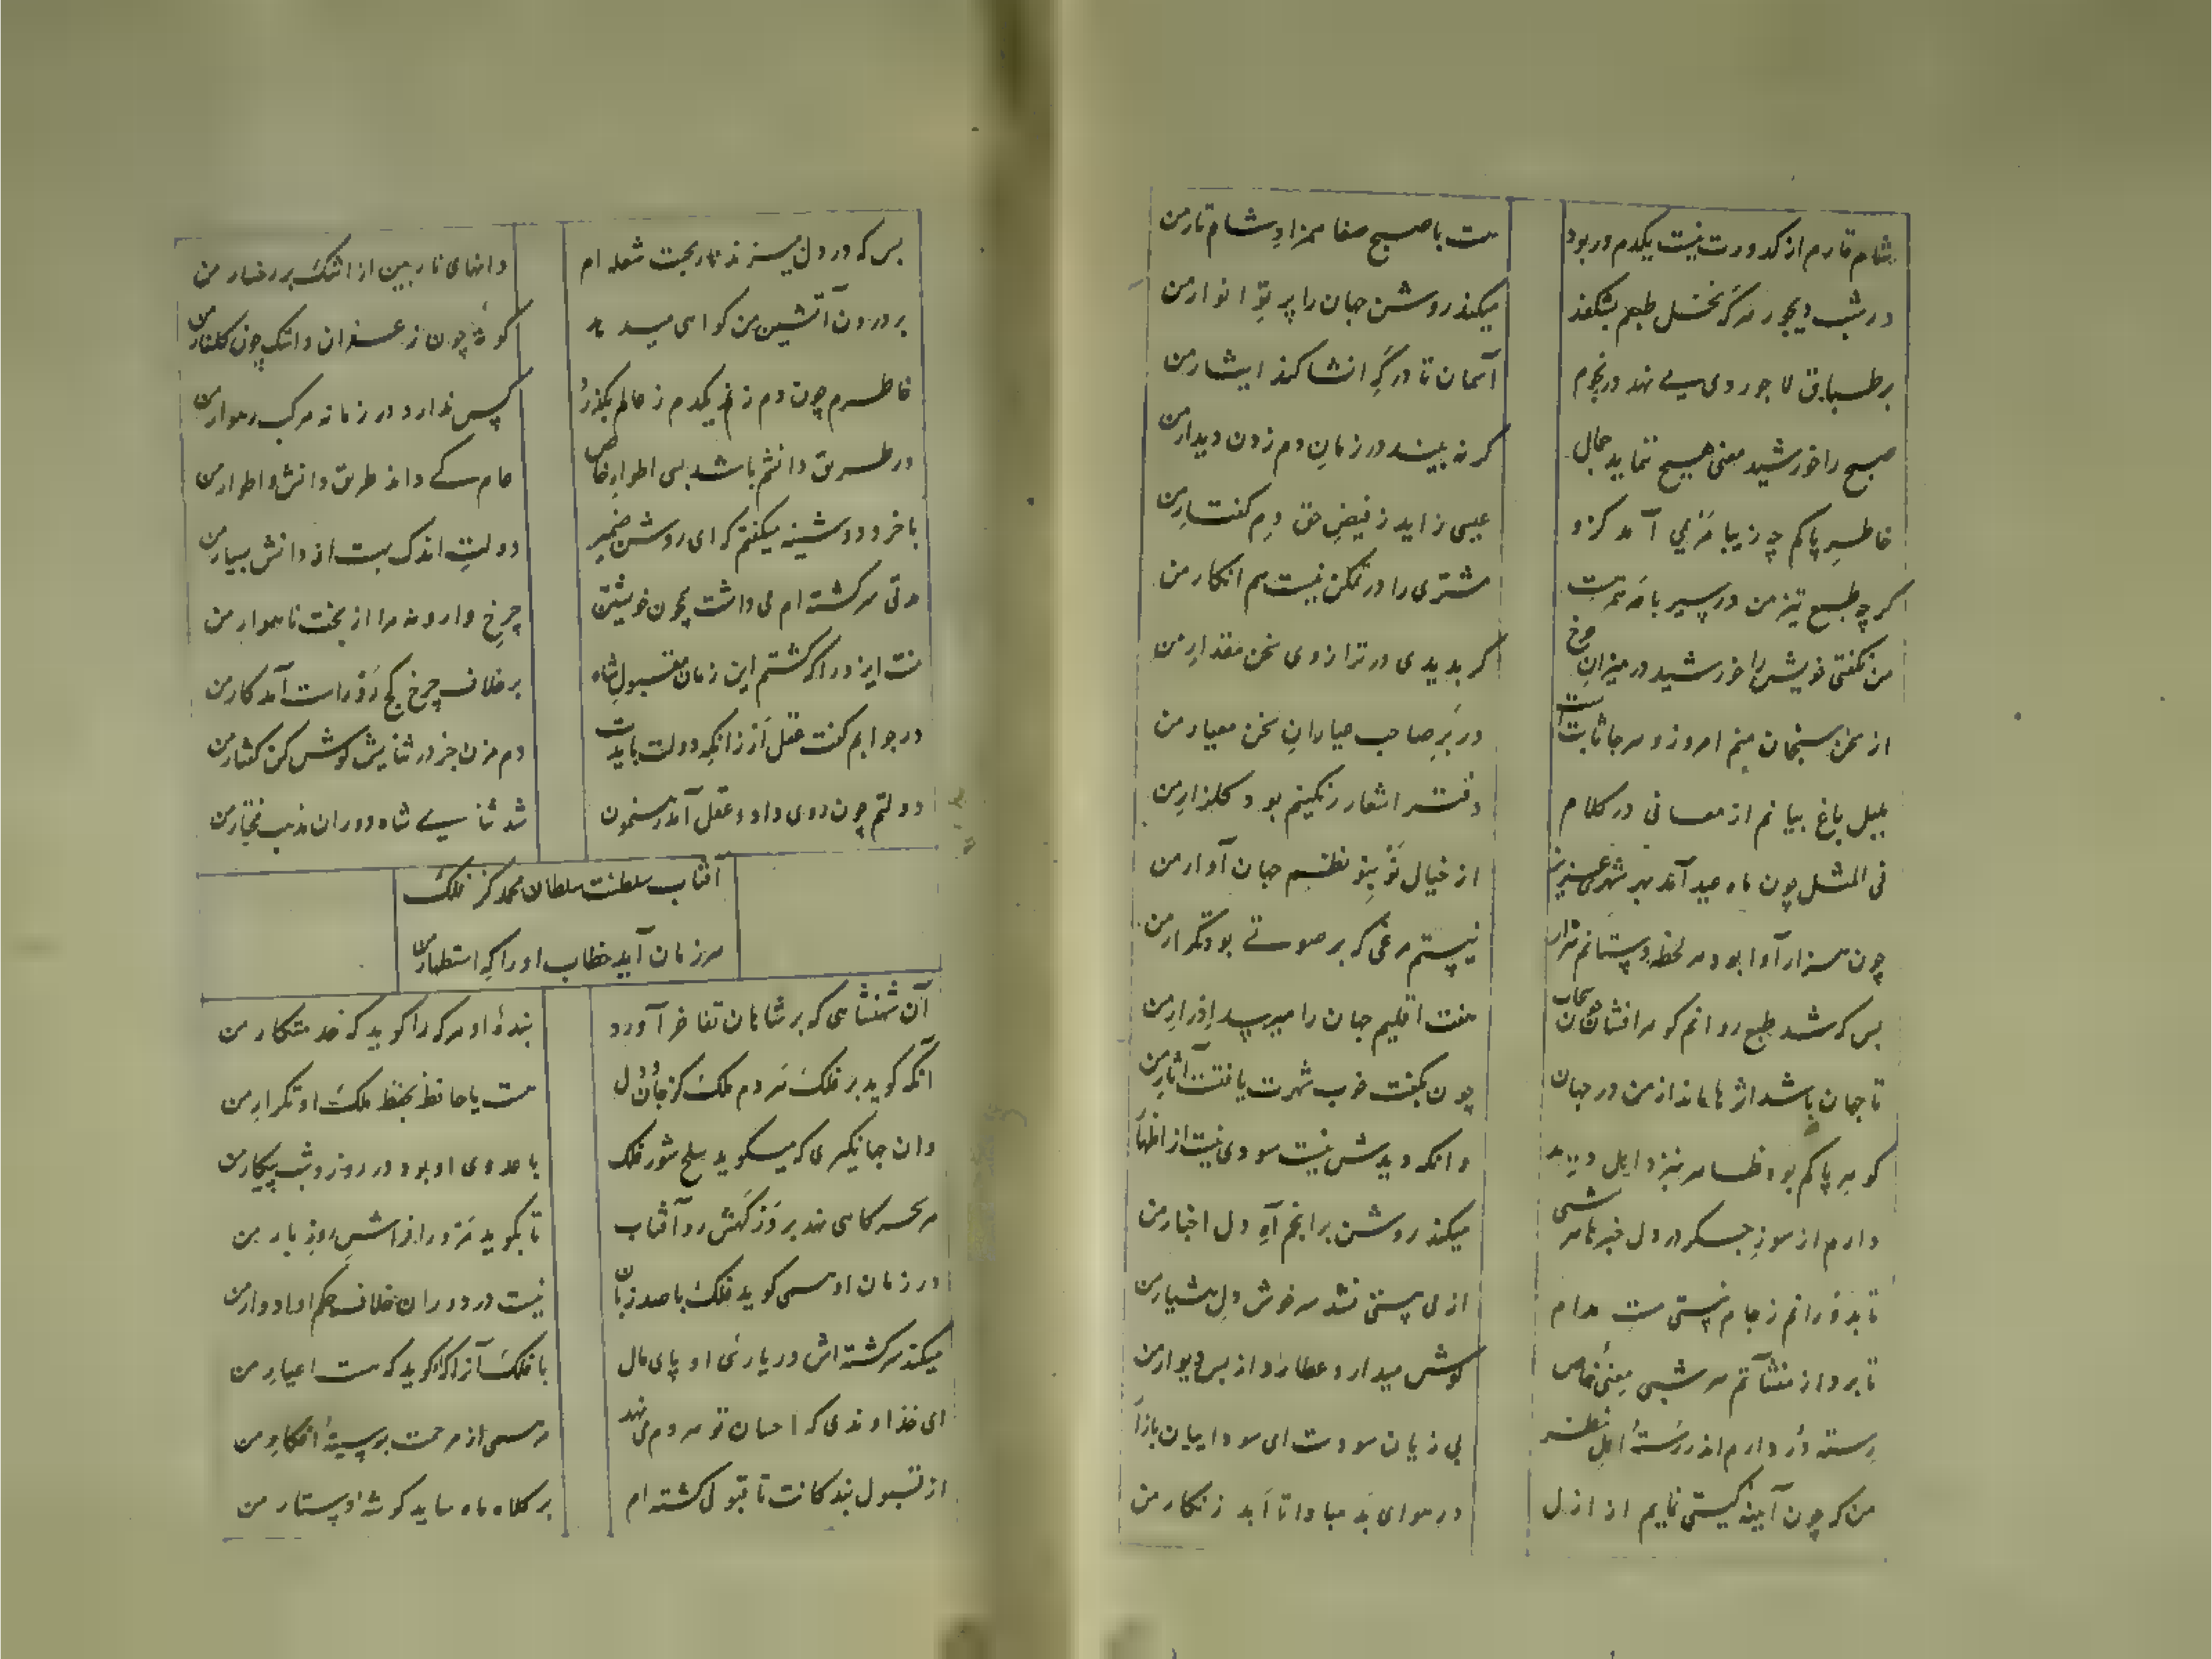 شام تارم از کدورت نیست یکدم در بود
هست با صبح صفا همزاد شام تار من
در شب دیجور هر گه نخل طبعم بشکفد
میکند روشن جهان را پرتو انوار من
بر طباق لاجوردی می نهد در نجوم
آسمان تا در گه انشا کند ایثار من
صبح را خورشید معنی هیچ ننماید جمال
گر نه بیند در زمان دم زدن دیدار من
خاطر پاکم چه زیبا مریمی آمد کزو
عیسی زاید ز فیض حق دم گفتار من
گر چه طبع تیز من در سیر با مه همرهست
مشتری را در تمکن نیست هم انکار من
من نگفتی خویش را خورشید در میزان چرخ
گر بدیدی در ترازوی سخن مقدار من
از سخن سنجان منم امروز و هر جا ثابتست
در بر صاحب عیاران سخن معیار من
بلبل باغ بیانم از معانی در کلام
دفتر اشعار رنگینم بود گلزار من
فی المثل چون ماه عید آمد بهر شهری عزیز
از خیال نو بنو نظم جهان آوار من
چون هزار آوا بود هر لحظه دستانم هزار
نیستم مرغی که بر صوتی بود تکرار من
بس که شد طبع روانم گوهر افشان چون سحاب
هفت اقلیم جهان را میرسد ادرار من
تا جهان باشد اثرها ماند از من در جهان
چون بگفت خوب شهرت یافتست آثار من
گوهر پاکم بود ظاهر بنزد اهل دید
وانکه دیدش نیست سودی نیست از اظهار
دارم از سوز جگر در دل خبرها هر شبی
میکند روشن بر انجم آه دل اخبار من
تا بدورانم ز جام نیستی مست مدام
از می هستی نشد سرخوش دل هشیار من
تا برد از منشآتم هر شبی معنی خاص
گوش میدارد عطارد از پس دیوار من
رسته در دارم اندر رسته اهل نظر
بی زیان سودست ای سوداییان بازار
من که چون آیینه گیتی نمایم از ازل
در هوای بد مبادا تا ابد زنگار من
بس که در دل میزند نار محبت شعله ام
دانهای نار بین از اشک بر رخسار من
بر درون آتشین من گواهی میدهد
گونه چون زعفران و اشک چون گلنار من
خاطرم چون دم زند یکدم ز عالم بگذرد
کس ندارد در زمانه مرکب رهوار من
در طریق دانشم باشد بسی اطوار خاص
عام کی داند طریق دانش و اطوار من
با خرد دوشینه میگفتم که ای روشن ضمیر
دولت اندک بهست از دانش بسیار من
مدتی سرگشته ام می داشت همچون خویشتن
چرخ وارونه مرا از بخت ناهموار من
منت ایزد را که گشتم این زمان مقبول شاه
بر خلاف چرخ کج رو راست آمد کار من
در جوابم گفت عقل ار زانکه دولت بایدت
دم مزن جز در ثنایش گوش کن گفتار من
دولتم چون روی داد و عقل آمد رهنمون
شد ثنای شاه دوران مذهب مختار من
آفتاب سلطنت سلطان محمد کز فلک
هر زمان آید خطاب او را که استظهار من
آن شهنشاهی که بر شاهان تفاخر آورد
بنده او هر که را گوید که خدمتکار من
آنکه گوید بر فلک هر دم ملک کز جان و دل
هست یا حافظ بحفظ ملک او تکرار من
وان جهانگیری که میگوید سلحشور فلک
با عدوی او بود در روز و شب پیکار من
هر سحرگاهی نهد بر درگهش رو آفتاب
تا بگوید مزور افراشش روز بار من
در زمان او همی گوید فلک با صد زبان
نیست در دوران خلاف حکم او ادوار من
میکند سرگشته اش در یارئی او پای مال
با فلک آنرا که گوید که هست اغیار من
ای خداوندی که احسان تو هر دم می نهد
مرهمی از مرحمت بر سینه افکار من
از قبول بندگانت تا قبول گشته ام
بر کلاه ماه ساید گوشه دستار من